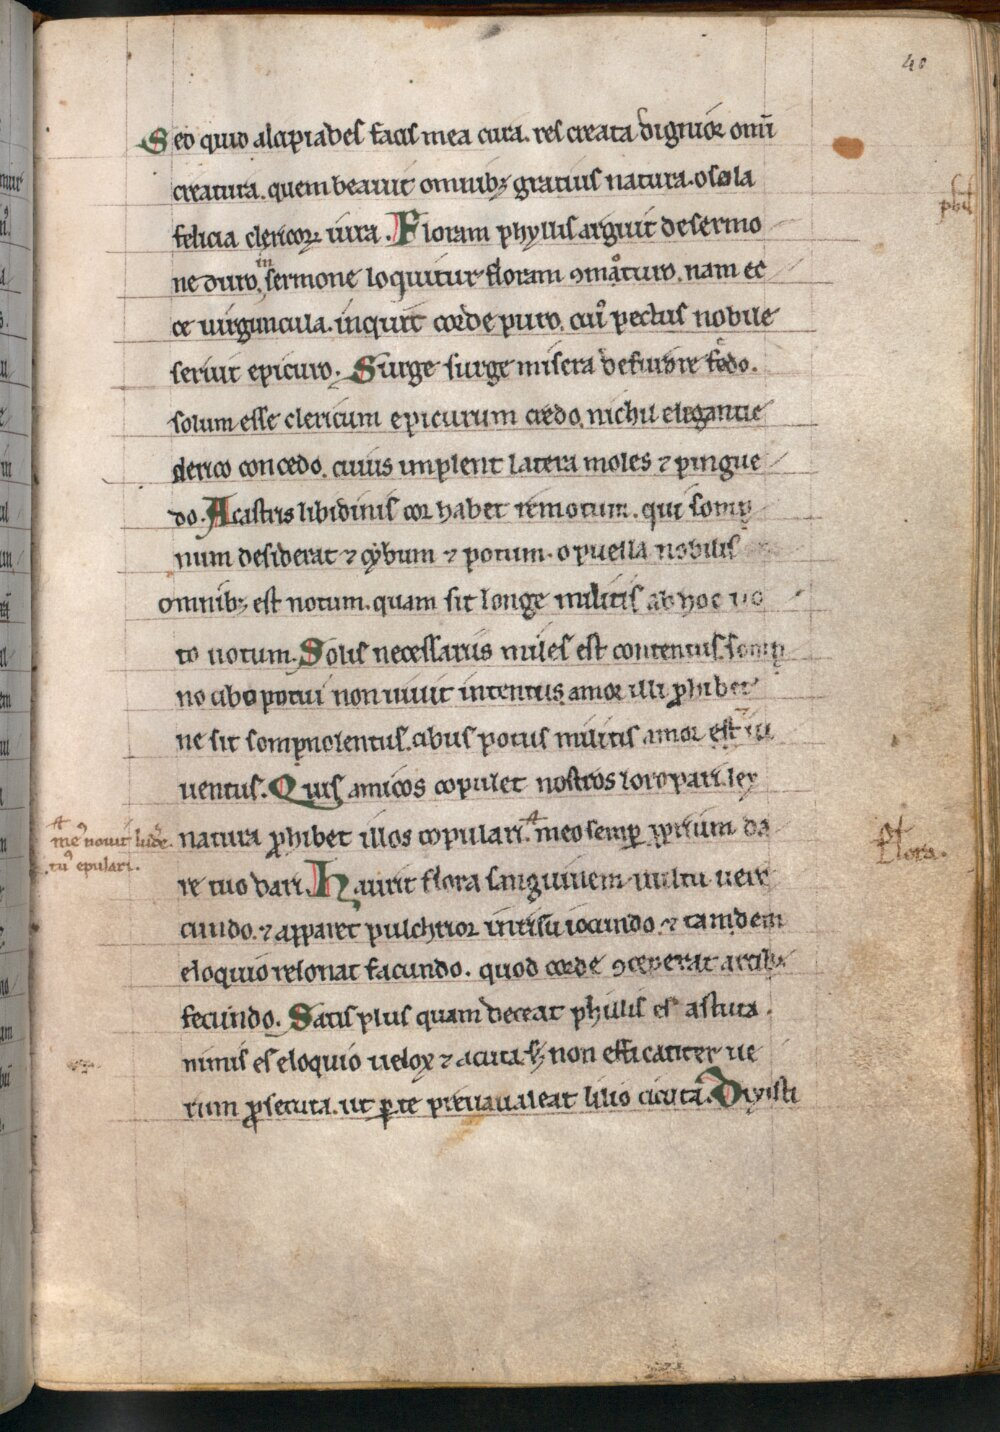 40
Sed quid alcipiades facis mea cura. res creata dignior omī
creatura. quem beauit omnibꝫ gratiis natura. o sola
felicia clericoꝝ iura. Floram phyllis arguit de sermo
phił
ne duro, in sermone loquitur floram ꝯmaturo. nam ec
ce uirguncula. inquit corde puro. cuiꝰ pectus nobile
seruit epicuro. Surge surge misera de furore fedo.
solum esse clericum epicurum credo. nichil elegantie
clerico concedo. cuius implent latera moles ⁊ pingue
do. A castris libidinis cor habet remotum. qui somp
num desiderat ⁊ cybum ⁊ potum. o puella nobilis
omnibꝫ est notum. quam sit longe militis ab hoc uo
to uotum. Solis necessariis miles est contentus. somp
no cibo potui non uiuit intentus. amor illi ꝓhibet
ne sit sompnolentus. cibus potus militis amor est iu
uentus. Quis amicos copulet nostros loro pari. lex
natura ꝓhibet illos copulari. meo semꝑ ꝓprium da
meꝰ nouit ludere.
tuꝰ epulari.
Flora.
re tuo dari. Haurit flora sanguinem uultu uere
cundo. ⁊ apparet pulchrior in risu iocundo. ⁊ tandem
eloquio resonat facundo. quod corde ꝯceperat artibꝫ
fecundo. Satis plus quam deceat phillis es astuta.
nimis es eloquio uelox ⁊ acuta. sꝫ non efficaciter ue
rum ꝓsecuta. ut ꝑ te preuaualeat lilio cicuta. Dixisti